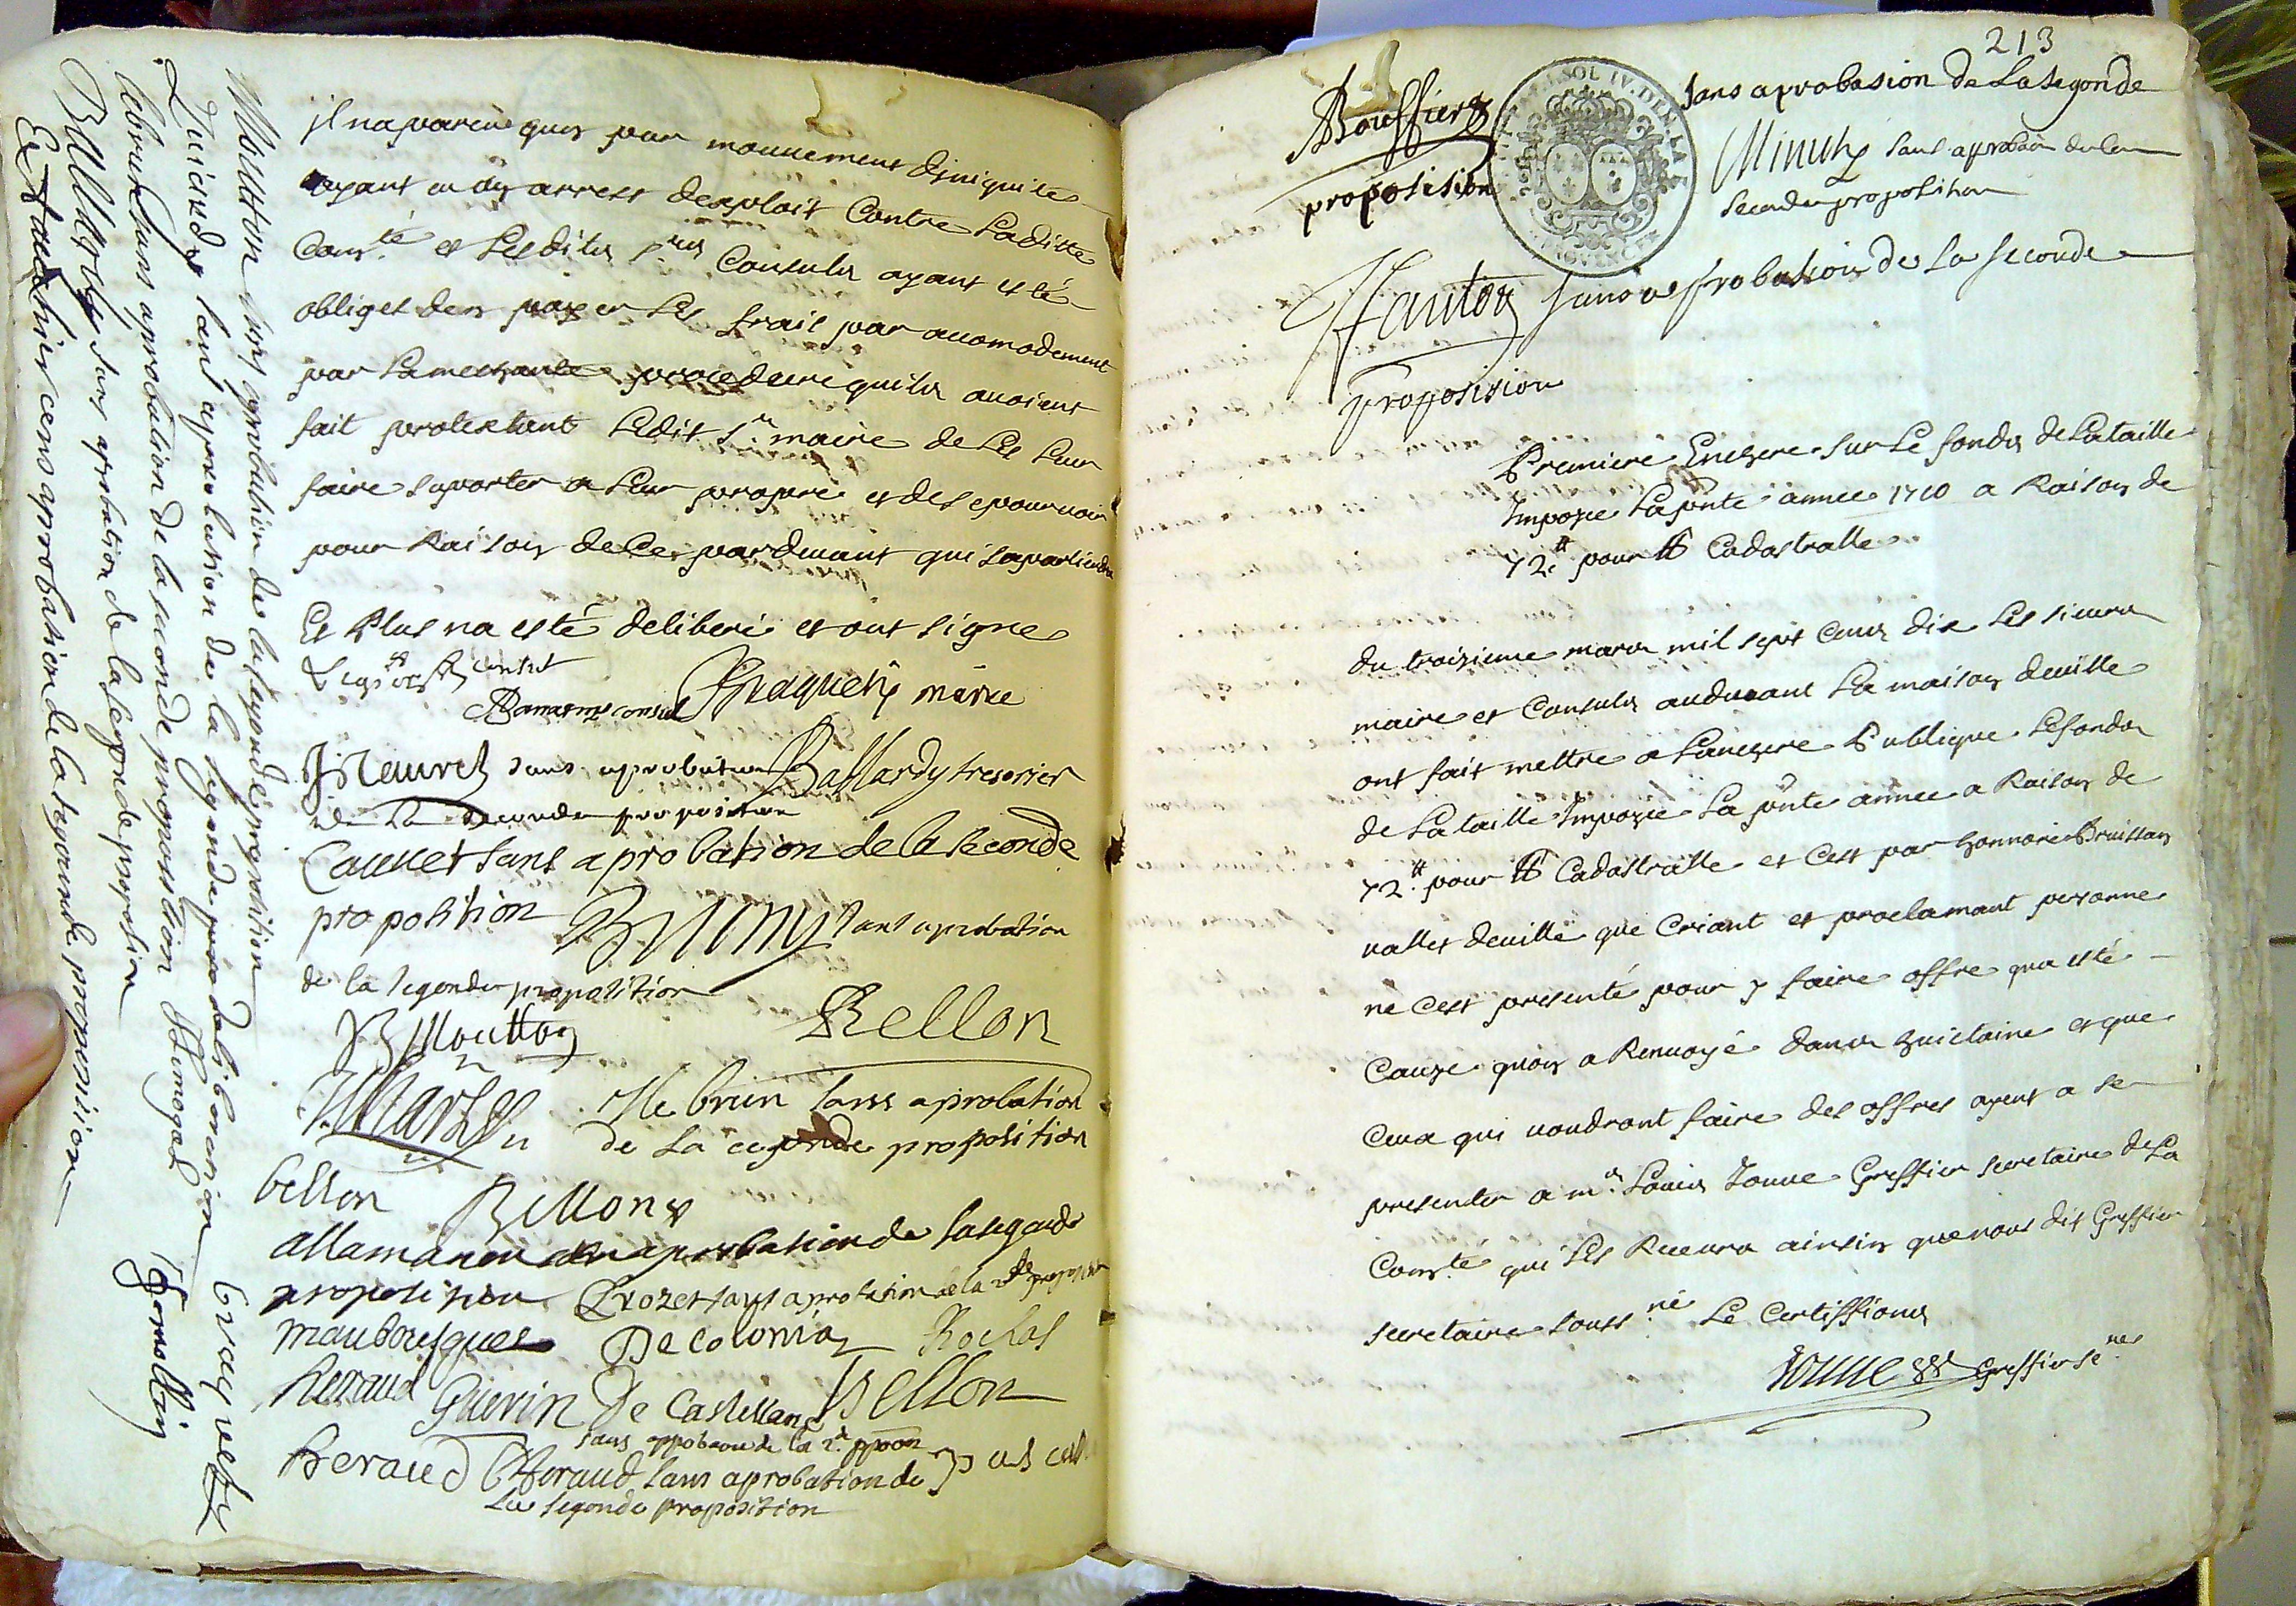 jl na pareu quy par mouuement djniquité
ayant eu dix arrest desploit Contre Laditte
Com.té et Lesdits s.rs Consuls ayant esté
obliges den payer Les frais par acomodement
par Lamechante procedeure quils auoient
fait protestant Ledit s.r maire de Les Leur
faire suporter a Leur propre et de se pouruoir
pour Raison de Ce pardeuant qui sapartiendra
Et Plus na esté deliberé et ont signe
consul
consul Braquety maire
sans aprobation Ballardy tresorier
de la seconde proposition
Cauuet sans aprobation de la seconde
proposition Bruny sans aprobation
de la segonde proposition
B Moutton Bellon
H brun sans aprobation
de La cegonde proposition
bellon Bellon
allamanon san aprobation de lasegonde
proposition Crozet sans aprobation de la 2de proposition
maubousques De Colonia Rochas
Reraud Guerin De Castellane Bellon
sans approbaon de la 2.de ppoon
Beraud Beraud sans aprobation de
La segonde proposition
Moutton sans aprobation de la segonde proposition
sans aprobation de la segonde deliberasion Braquety
lebrun sans aprobation de la seconde proposition
Ballardy sans aprobation de la segonde proposition
cens aprobasion de la segonde proposision
213
Bouffier sans aprobasion de La segonde
proposision
Minuty sans aprobaon de la
seconde proposition
Hautor sans aprobation de La seconde
proposision
SOL IV. DEN. LA F
PROVENCE
Premiere Enchere sur Le fonds de Lataille
Impozee La pnte annee 1710 a Raison de
72.# pour # Cadastralle
du troisieme mars mil sept Cens dix Les sieurs
maire et Consuls audeuant La maison deuille
ont fait mettre a Lanchere Publique Lefonds
de Lataille Impozee La pnte annee a Raison de
72.# pour # Cadastralle et Cest par honnoré Bruissan
vallet deuille que Criant et proclamant personne
ne Cest presenté pour y faire offre qua esté
Cauze quon a Renuoyé dans huictaine et que
Ceux qui voudront faire des offres ayent a se
presenter a m.e Louis Jouue Greffier secretaire de La
Com.té qui Les Receura ainsin que nous dit Greffier
secretaire souss.né Le Certiffions
Jouue Greffier se.re